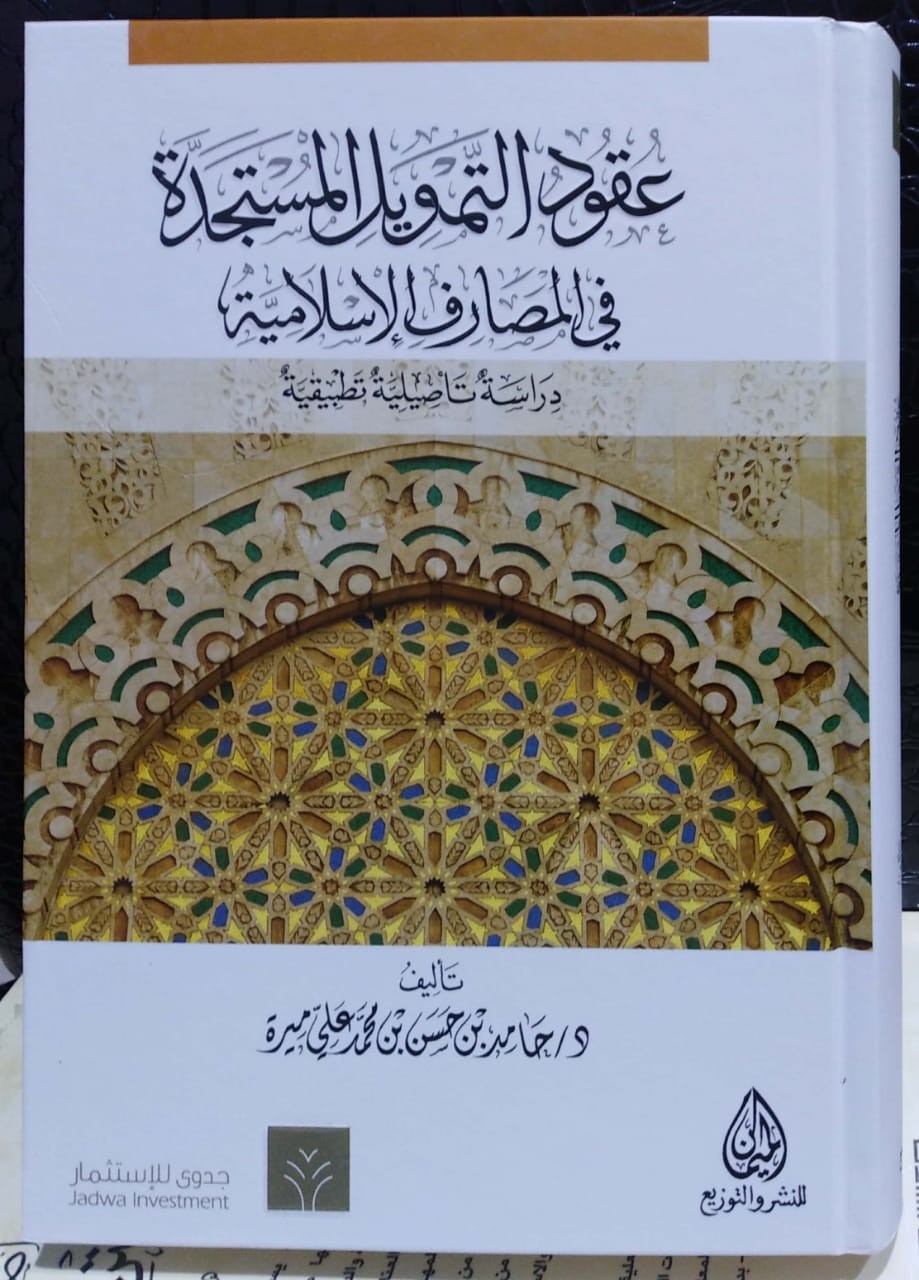 عقود التمويل المستجدة
في المصارف الإسلامية
دراسة تأصيلية تطبيقية
تأليف
د/ حامد بن حسن بن محمد علي ميرة
الميمان
للنشر والتوزيع
جدوى للإستثمار
Jadwa Investment